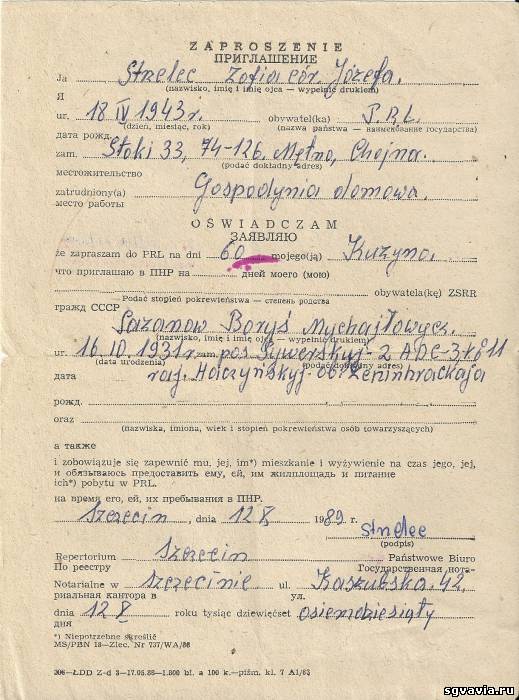 ZAPROSZENIE
ПРИГЛАШЕНИЕ
Ja Strelec Zofia cór. Józefa.
(nazwisko, imię i imię ojca — wypełnić drukiem)
Я
ur. 18 IV 1943 r. obywatel(ka) P.R.L.
(dzień, miesiąc, rok) (nazwa państwa — наименование государства)
дата рожд.
zam. Stoki 33, 74-126. Mętno, Chojna.
(podać dokładny adres)
местожительство
zatrudniony(a) Gospodynia domowa.
место работы
OŚWIADCZAM
ЗАЯВЛЯЮ
że zapraszam do PRL na dni 60 mojego(ją) Kuzyna.
что приглашаю в ПНР на дней моего (мою)
obywatela(kę) ZSRR
Podać stopień pokrewieństwa — степень родства
гражд СССР
Sazanow Boryś Mychajłowycz.
(nazwisko, imię i imię ojca — wypełnić drukiem)
ur. 16. 10. 1931 r. zam. pos. Sywerskyj-2
(data urodzenia) (podać dokładny adres)
дата raj. Hatczynśkyj. obł.
рожд.
oraz
(nazwiska, imiona, wiek i stopień pokrewieństwa osób towarzyszących)
а также
i zobowiązuje się zapewnić mu, jej, im*) mieszkanie i wyżywienie na czas jego, jej,
и обязываюсь предоставить ему, ей, им жилплощадь и питание
ich*) pobytu w PRL.
на время его, ей, их пребывания в ПНР.
Szczecin, dnia 12 X 1989 r. Strelec
(podpis)
Repertorium Szczecin Państwowe Biuro
По реестру Государственная нота-
Notarialne w Szczecinie ul. Kaszubska. 42.
риальная кантора в ул.
dnia 12 X roku tysiąc dziewięćset osiemdziesiąty
дня
*) Niepotrzebne skreślić
MS/PBN 13—Zlec. Nr 737/WA/88
306—ŁDD Z-d 3—17.05.88—1.800 bl. a 100 k.—piśm. kl. 7 A1/63
sgvavia.ru